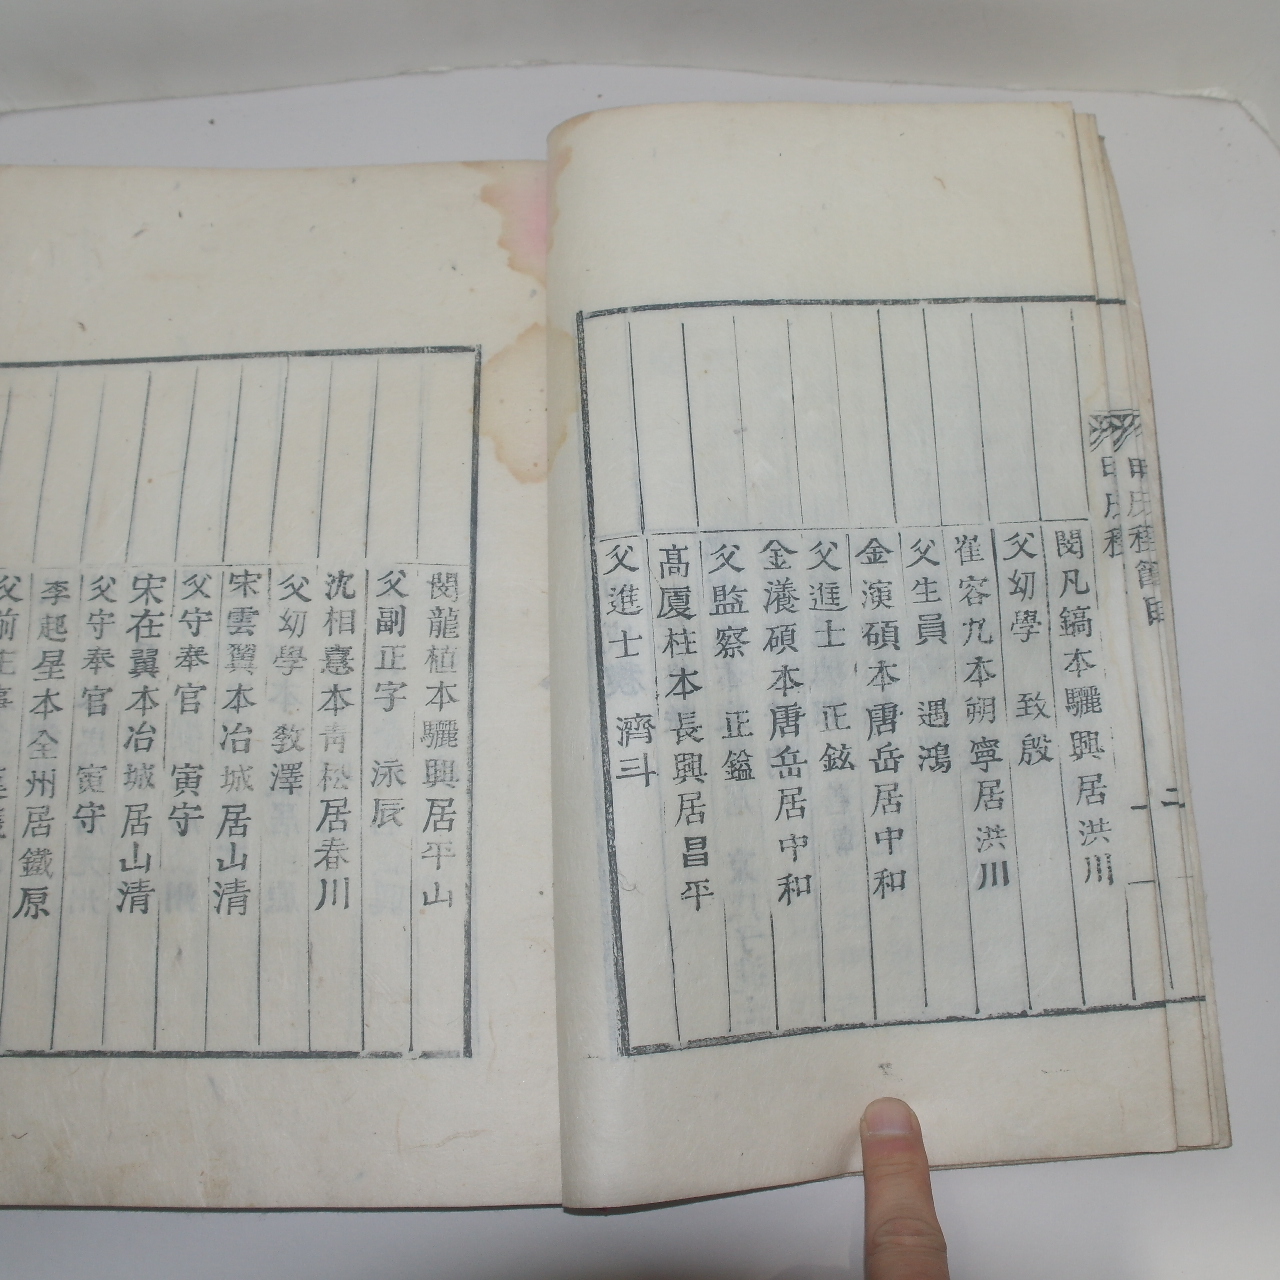 閔凡鎬本驪興居洪川
父幼學 致殷
崔容九本朔寧居洪川
父生員 遇鴻
金演碩本唐岳居中和
父進士 正鉉
金瀁碩本唐岳居中和
父監察 正鎰
高厦柱本長興居昌平
父進士 濟斗
閔龍植本驪興居平山
父副正字 泳辰
沈相憙本靑松居春川
父幼學 敎澤
宋雲翼本冶城居山淸
父守奉官 寅守
宋在翼本冶城居山淸
父守奉官 寅守
李起星本全州居鐵原
父前主事